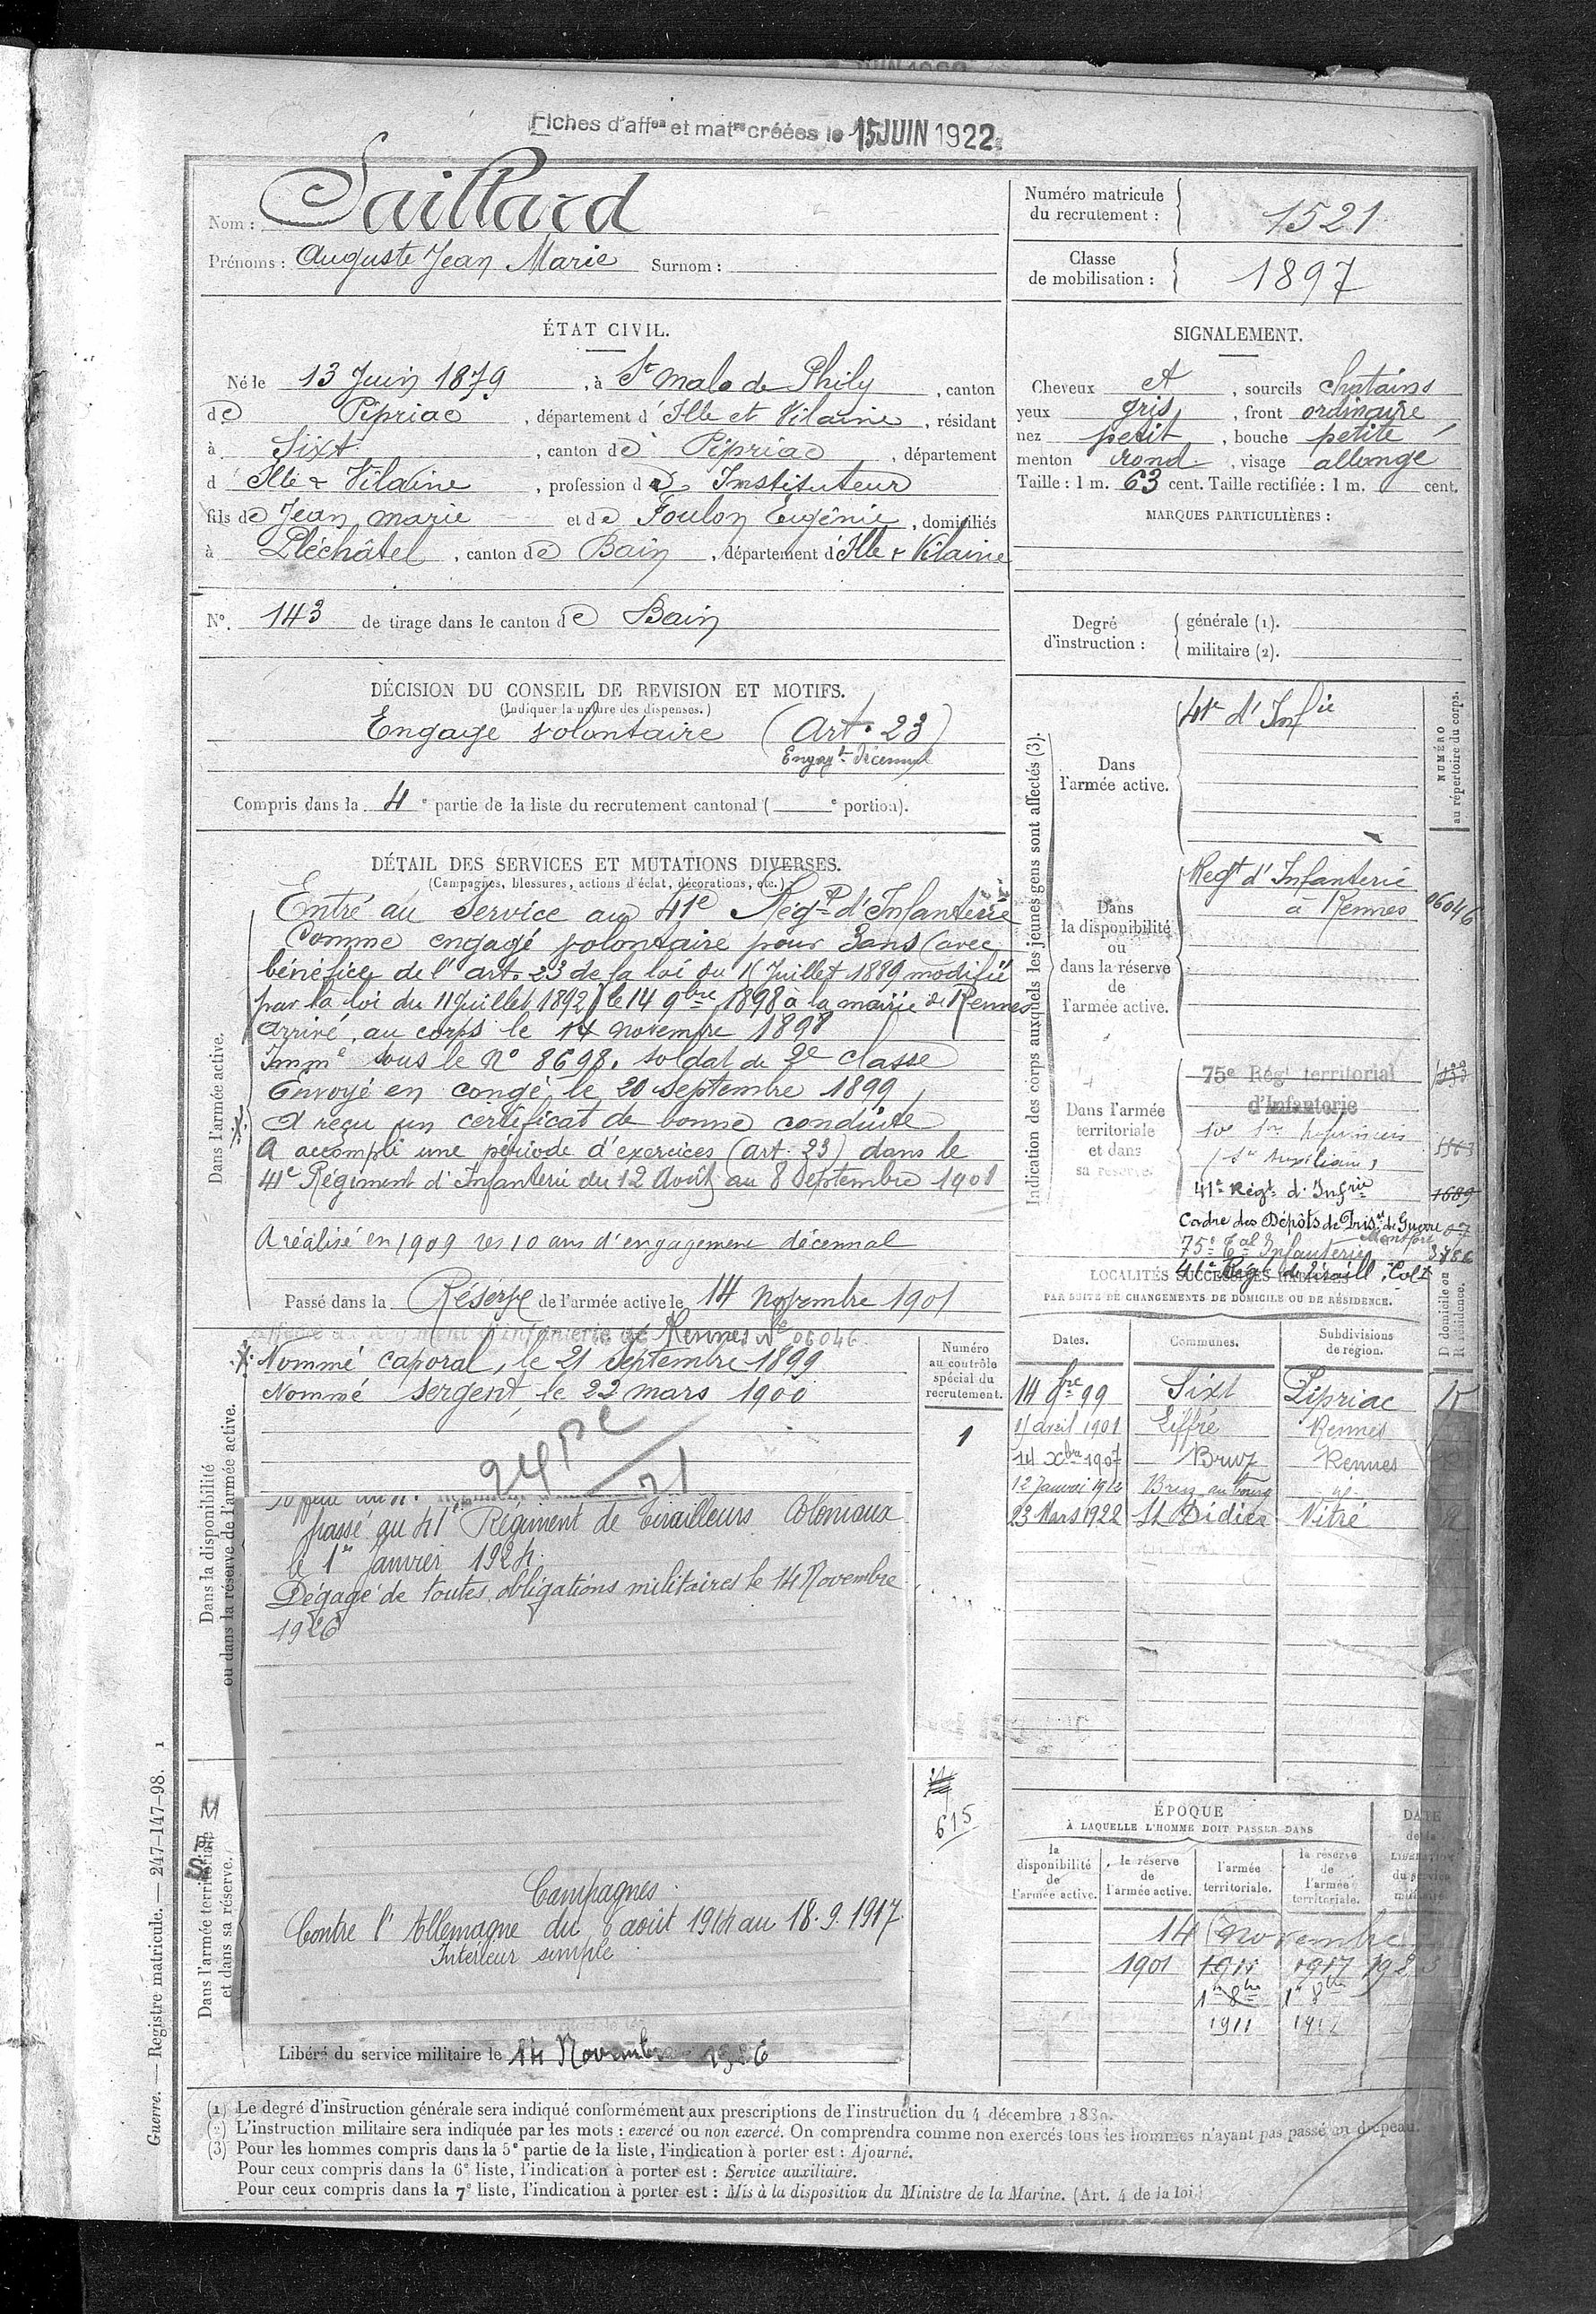 Fiches d'affon et matre créées le 15 JUIN 1922
Nom : Saillard
Prénoms : Auguste Jean Marie Surnom :
Numéro matricule du recrutement : 1521
Classe de mobilisation : 1897
ÉTAT CIVIL.
Né le 13 Juin 1879, à St Malo de Phily, canton
de Pipriac, département d'Ille et Vilaine, résidant
à Sixt, canton de Pipriac, département
d Ille & Vilaine, profession d Instituteur
fils de Jean marie et de Foulon Eugénie, domiciliés
à Pléchâtel, canton de Bain, département d'Ille & Vilaine
SIGNALEMENT.
Cheveux et, sourcils chatains
yeux gris, front ordinaire
nez petit, bouche petite
menton rond, visage allongé
Taille : 1 m. 63 cent. Taille rectifiée : 1 m. cent.
MARQUES PARTICULIÈRES :
N° 143 de tirage dans le canton de Bain
Degré d'instruction : générale (1).
militaire (2).
DÉCISION DU CONSEIL DE REVISION ET MOTIFS.
(Indiquer la nature des dispenses.)
Engagé volontaire (Art. 23)
Engagt décennal
Compris dans la 4e partie de la liste du recrutement cantonal ( e portion).
DÉTAIL DES SERVICES ET MUTATIONS DIVERSES.
(Campagnes, blessures, actions d'éclat, décorations, etc.)
Dans l'armée active.
Entré au service au 41e Régt d'Infanterie
Comme engagé volontaire pour 3 ans (avec
bénéfice de l'art. 23 de la loi du 15 Juillet 1889 modifié
par la loi du 11 juillet 1892) le 14 9bre 1898 à la mairie de Rennes
arrivé au corps le 14 novembre 1898
Imme sous le N° 8698, soldat de 2e classe
Envoyé en congé le 20 septembre 1899
A reçu un certificat de bonne conduite
A accompli une période d'exercices (art. 23) dans le
41e Régiment d'Infanterie du 12 Août au 8 Septembre 1901
A réalisé en 1909 ses 10 ans d'engagement décennal
Passé dans la Réserve de l'armée active le 14 novembre 1901
Dans la disponibilité ou dans la réserve de l'armée active.
Affecté au Régiment d'Infanterie de Rennes N° 06046
Nommé caporal, le 21 septembre 1899
Nommé sergent le 22 mars 1900
passé au 41e Régiment de Tirailleurs Coloniaux
le 1er Janvier 1924.
Dégagé de toutes obligations militaires le 14 Novembre
1926
Dans l'armée territoriale et dans sa réserve.
Campagnes.
Contre l'Allemagne du août 1914 au 18.9.1917.
Intérieur simple
Libéré du service militaire le 14 Novembre 1926
Numéro au contrôle spécial du recrutement.
1
615
Indication des corps auxquels les jeunes gens sont affectés (3).
NUMÉRO au répertoire du corps.
Dans l'armée active.
41e d'Infie
Dans la disponibilité ou dans la réserve de l'armée active.
Régt d'Infanterie
à Rennes 06046
Dans l'armée territoriale et dans sa réserve.
75e Régt territorial
d'Infanterie
41e Régt d'Infrie 1689
Cadre des Dépôts de Prisrs de Guerre
75e Tal Infanterie
41e Rég. de Tiraill. Colx
LOCALITÉS SUCCESSIVES HABITÉES
PAR SUITE DE CHANGEMENTS DE DOMICILE OU DE RÉSIDENCE.
D domicile ou R résidence.
Dates. Communes. Subdivisions de région.
14 9bre 99 Sixt Pipriac
avril 1901 Liffré Rennes
Xbre 1907 Bruz Rennes
12 Janvier 1912 Bruz au bourg id
23 Mars 1922 St Didier Vitré
ÉPOQUE
À LAQUELLE L'HOMME DOIT PASSER DANS
la disponibilité de l'armée active.
la réserve de l'armée active.
l'armée territoriale.
la réserve de l'armée territoriale.
DATE de la LIBÉRATION du service militaire
14 novembre
1901 1911 1917
1911 1912
(1) Le degré d'instruction générale sera indiqué conformément aux prescriptions de l'instruction du 4 décembre
(2) L'instruction militaire sera indiquée par les mots : exercé ou non exercé. On comprendra comme non exercés tous les hommes n'ayant pas passé au drapeau.
(3) Pour les hommes compris dans la 5e partie de la liste, l'indication à porter est : Ajourné.
Pour ceux compris dans la 6e liste, l'indication à porter est : Service auxiliaire.
Pour ceux compris dans la 7e liste, l'indication à porter est : Mis à la disposition du Ministre de la Marine. (Art. 4 de la loi.)
Guerre. — Registre matricule. — 247-147-98. 1